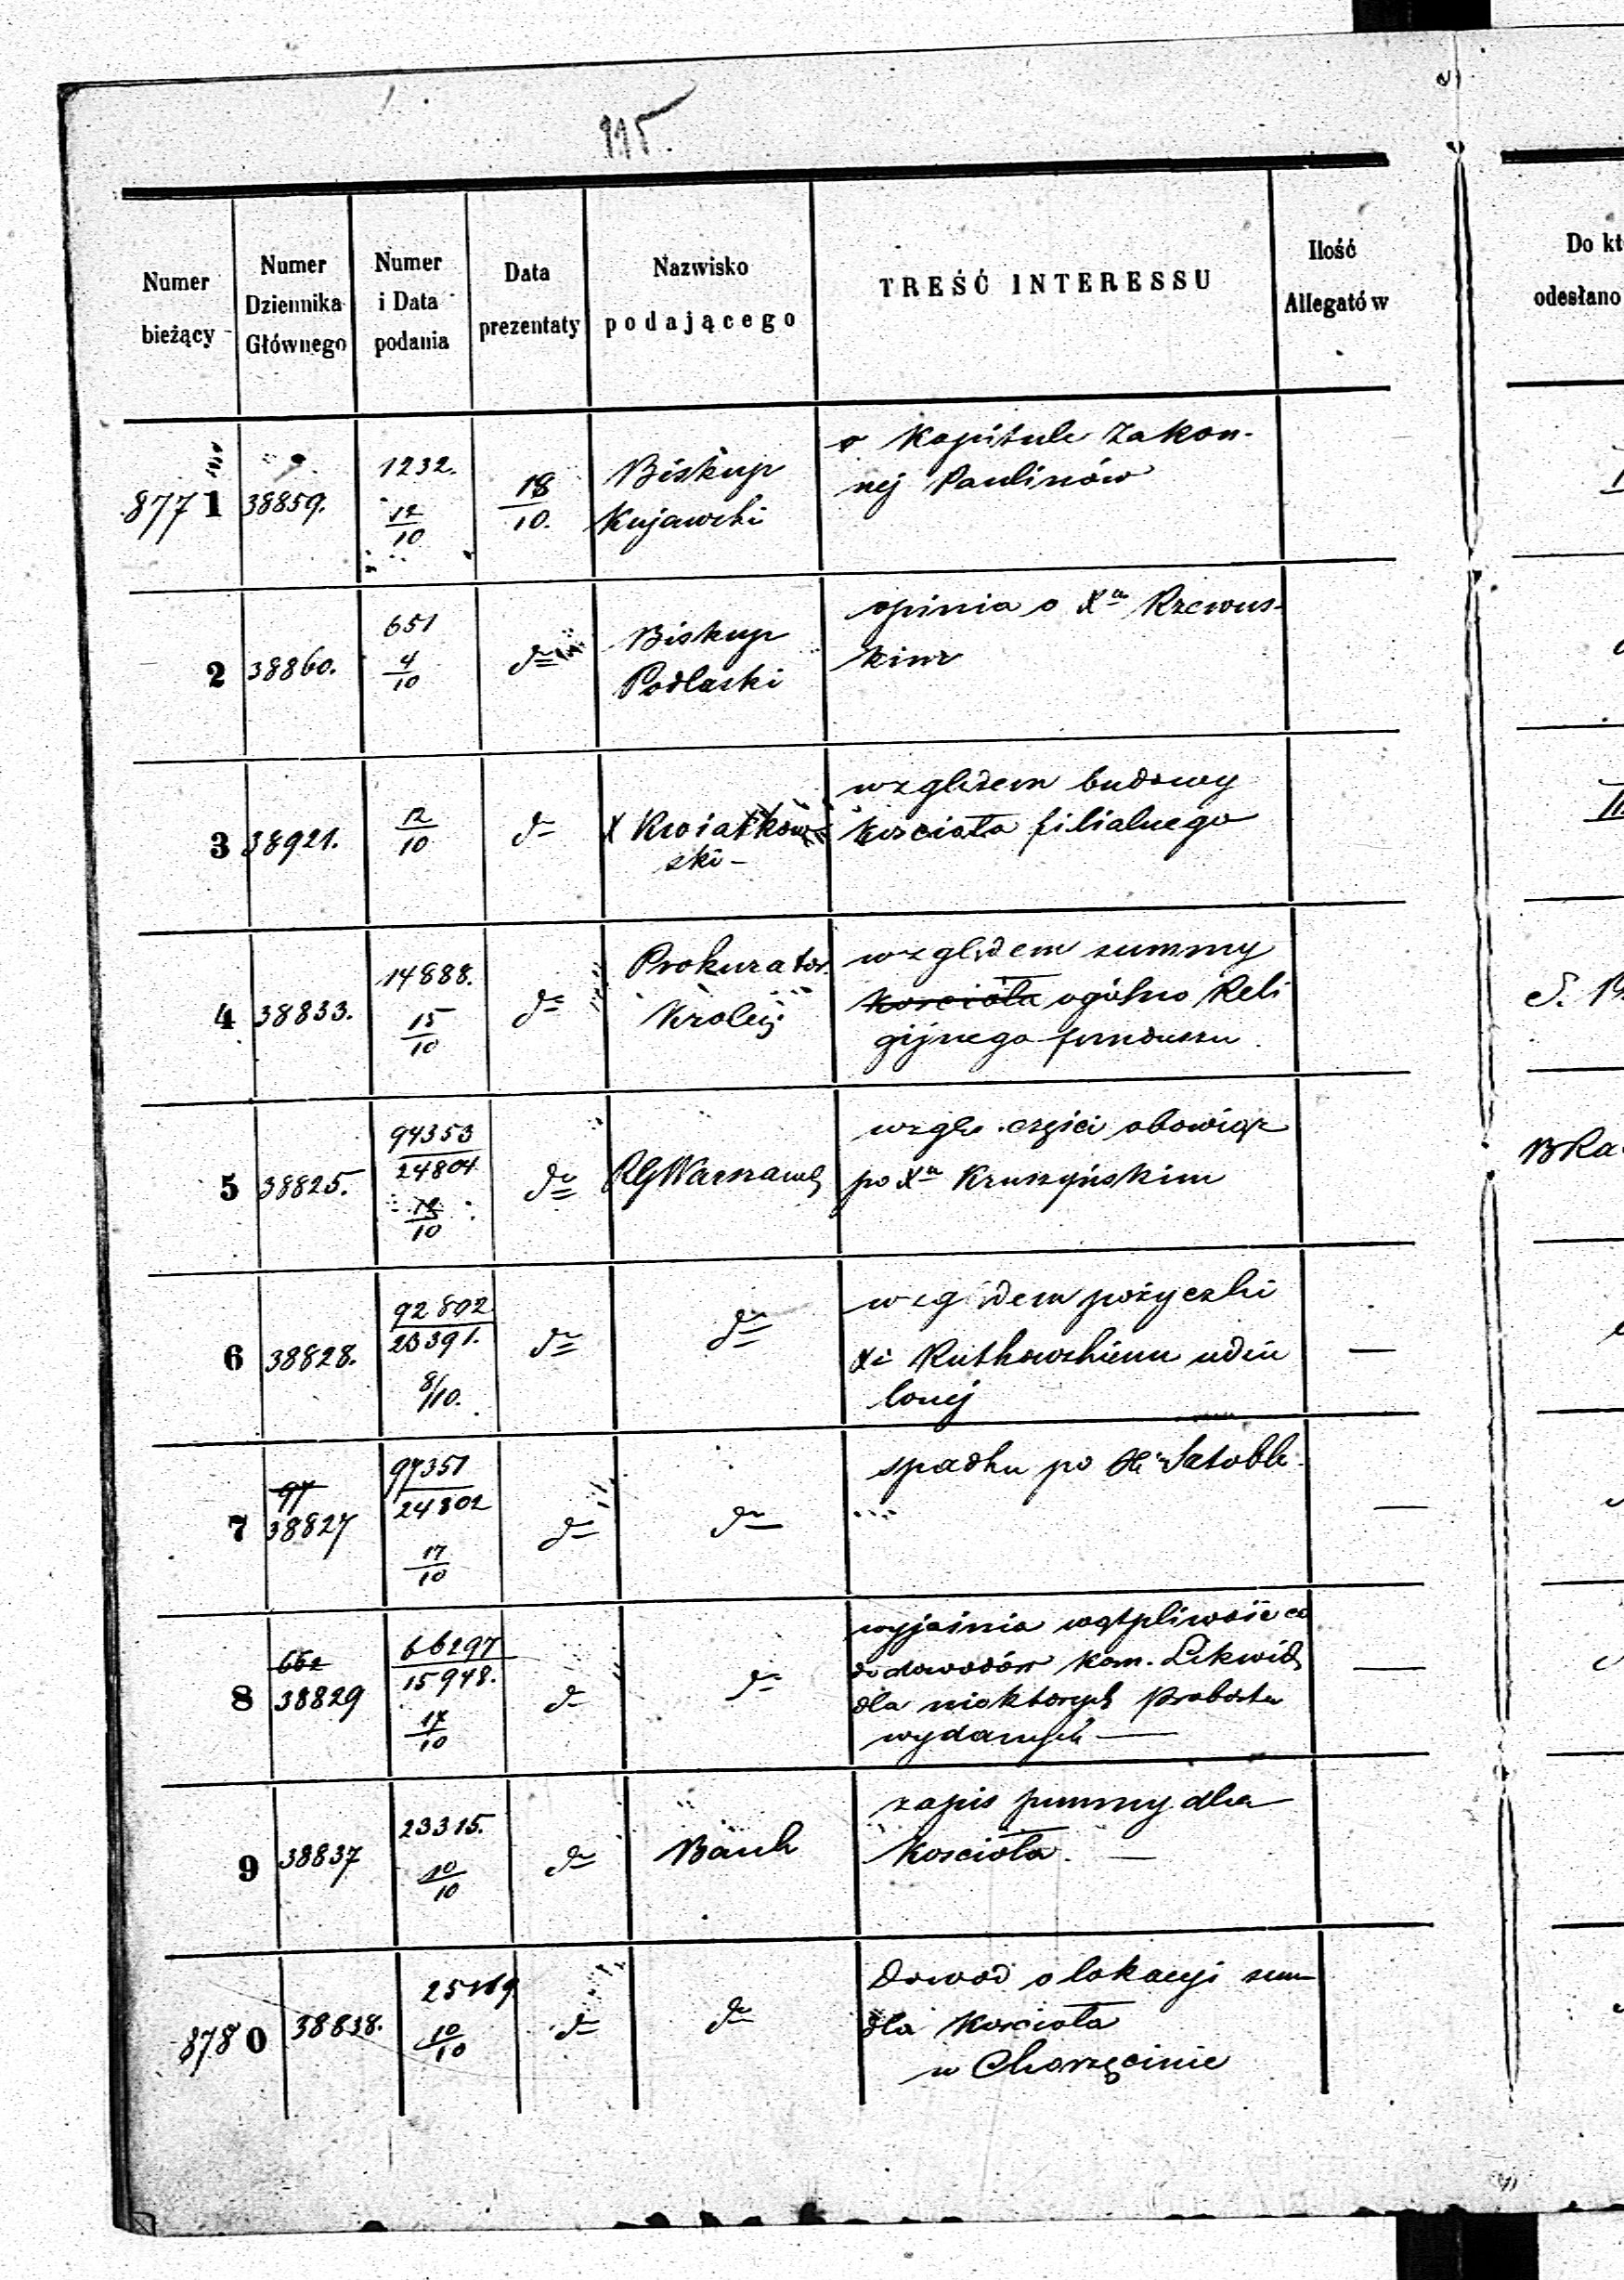 115.
Numer bieżący
Numer Dziennika Głównego
Numer i Data podania
Data prezentaty
Nazwisko podającego
TREŚĆ INTERESSU
Ilość Allegatów
Do kt
odesłano
8771 38859. 1232. 12/10 18/10. Biskup Kujawski
o Kapitule Zakon-
nej Paulinów
2 38860. 651 4/10 do Biskup Podlaski
opinia o Xu Rzewus-
kim
3 38921. 12/10 do X Kwiatkow-
ski -
względem budowy
kościoła filialnego
4 38833. 14888. 15/10 do Prokurator Krolej
względem summy
kościoła ogólno Reli
gijnego funduszu.
5 38825. 94353/24804 12/10 do RGWarszaws
wzglę. części obowiąz
po Xu Kruszyńskim
6 38828. 92802/23391. 8/10. do do
wzg dem pożyczki
Xi Rutkowskiemu udzie
lonej
7 97 38827 97351/24802 17/10 do do
spadku po
8 662 38829 66297/15948. 17/10 do do
wyjaśnia wątpliwoście co
do dowodów Kom. Likwid
dla niektorych Probostw
wydanych —
9 38837 23315. 10/10 do Bank
zapis summy dla
Kościoła. —
8780 38838. 25169 10/10 do do
Dowod o lokacyi sum
dla Kościoła
w Chorzęcinie